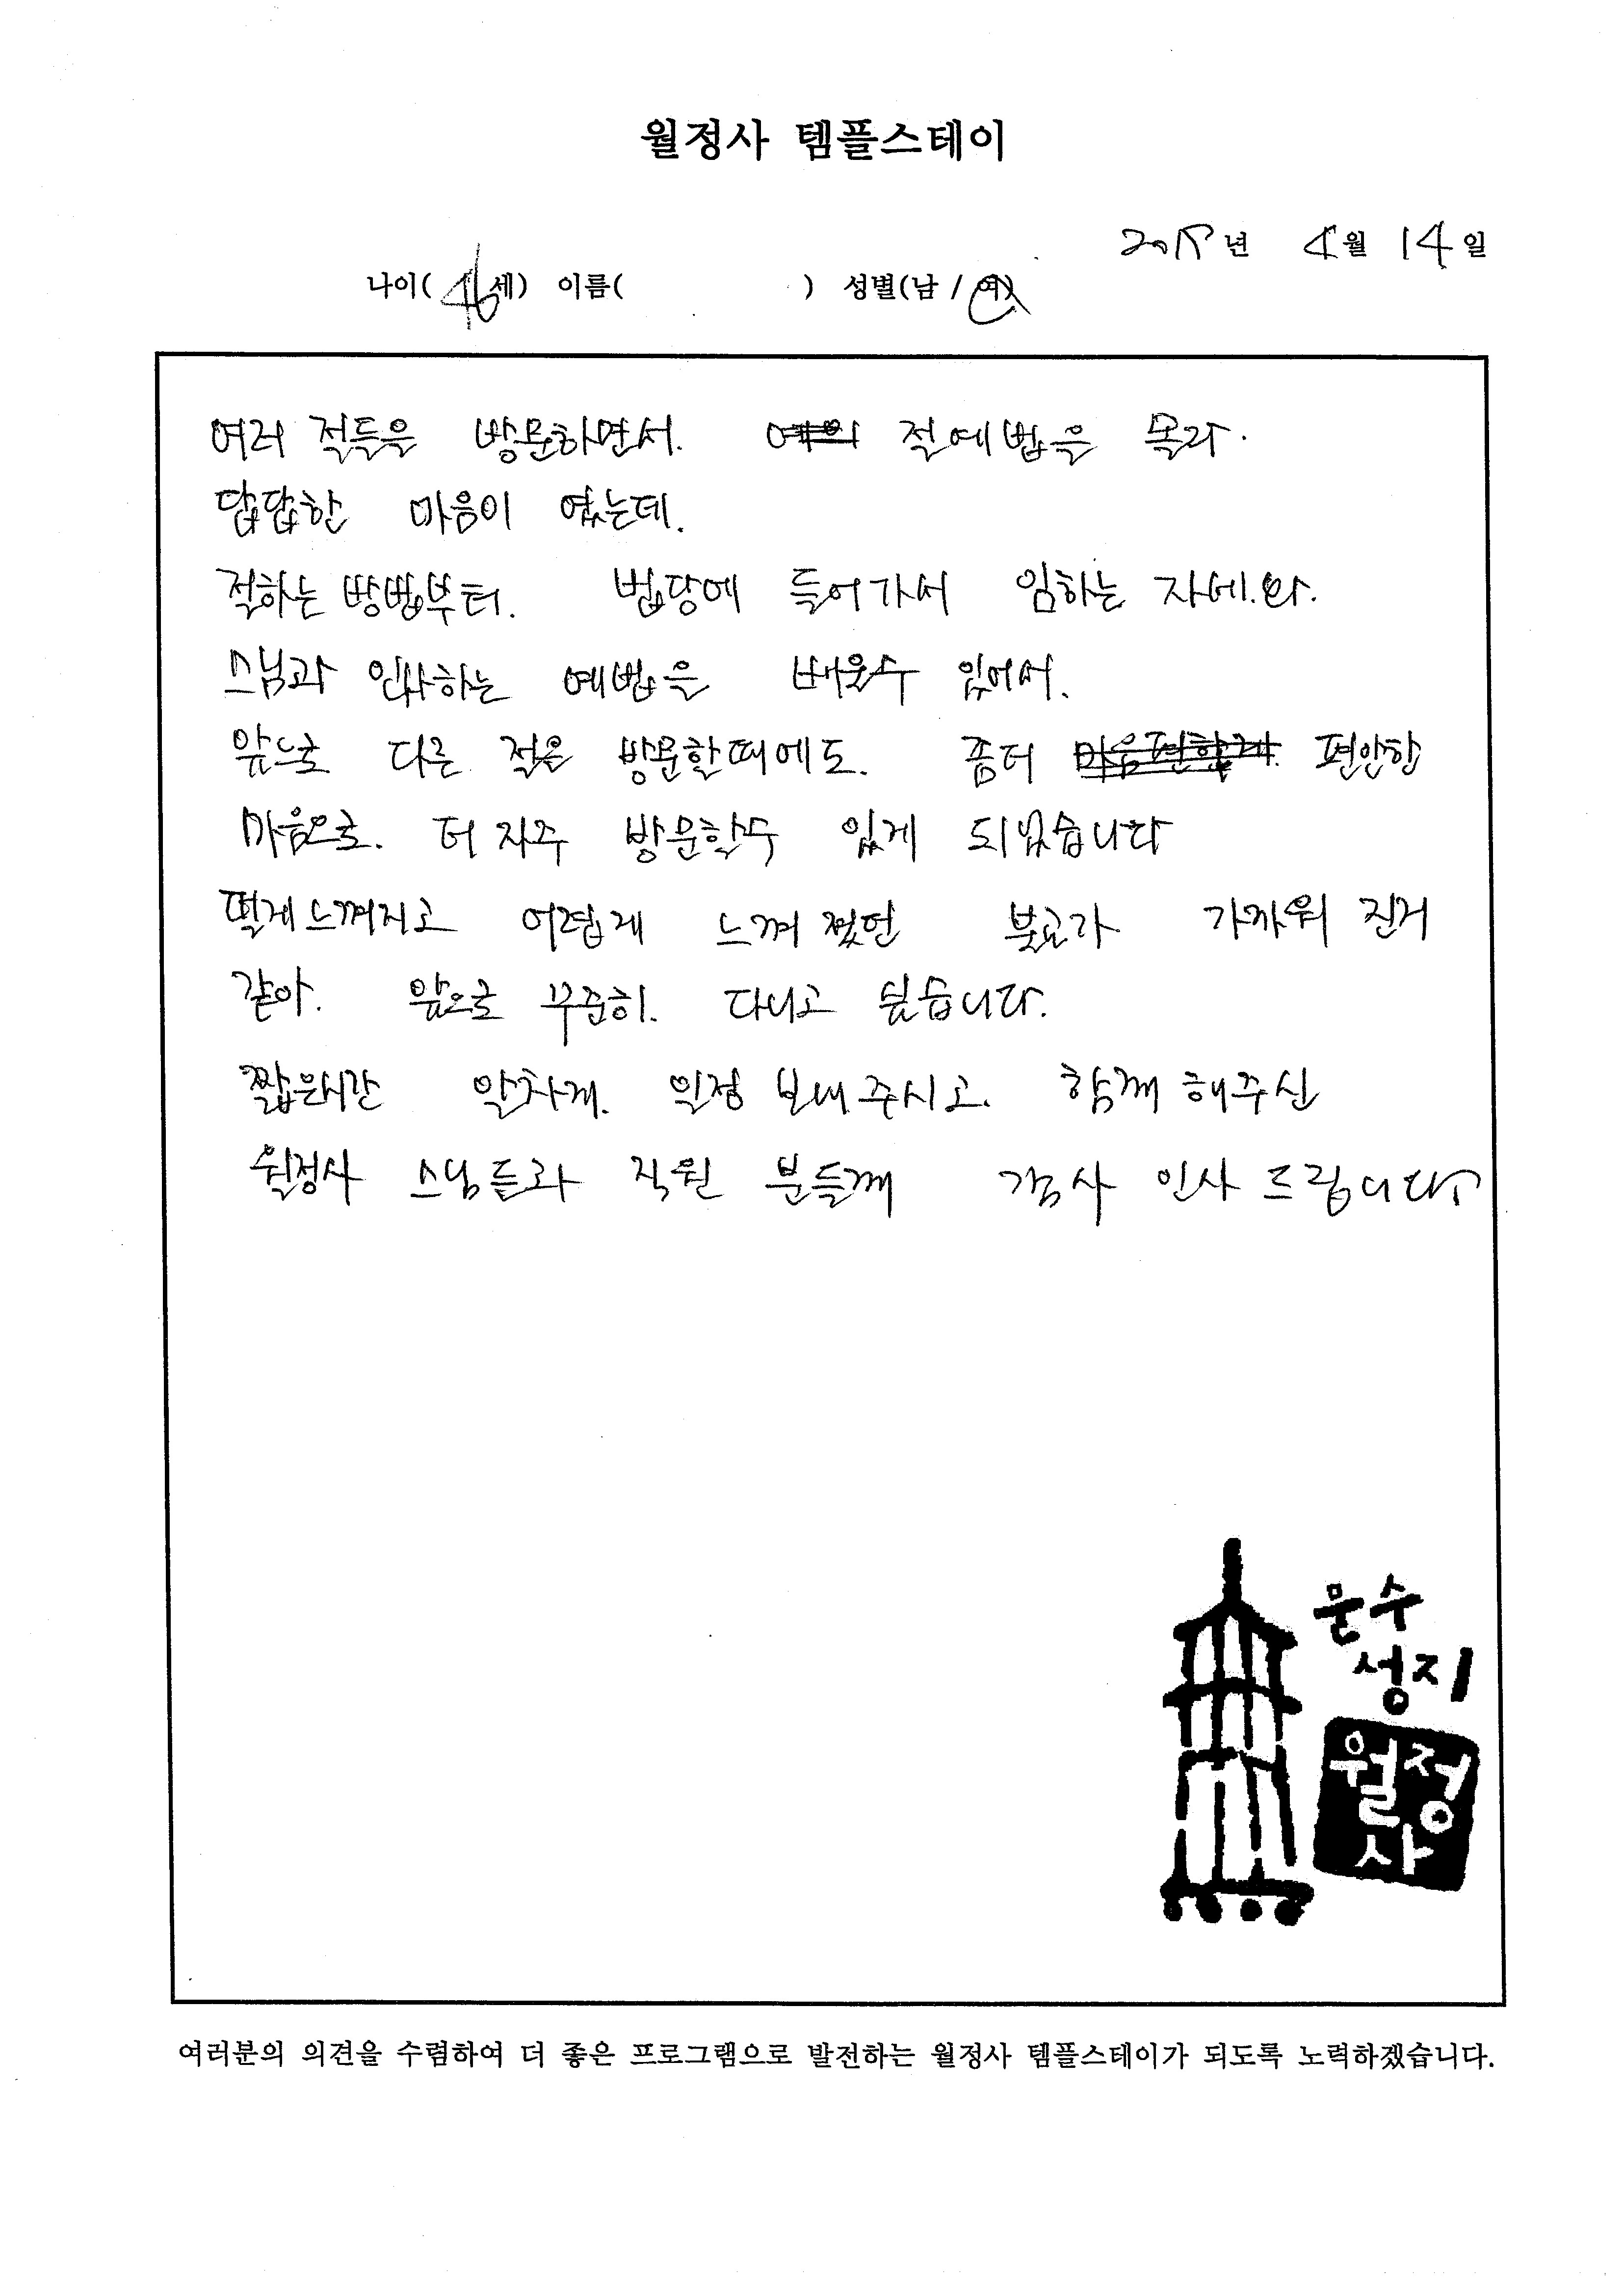 월정사 템플스테이
2018년 4월 14일
나이(46세) 이름( ) 성별(남/여)
여러 절들을 방문하면서. 절예법을 몰라.
답답한 마음이 였는데.
절하는 방법부터. 법당에 들어가서 임하는 자세.와.
스님과 인사하는 예법을 배울수 있어서.
앞으로 다른 절을 방문할때에도. 좀더 편안한
마음으로. 더 자주 방문할수 있게 되었습니다
멀게느껴지고 어렵게 느껴 졌던 불교가 가까워 진거
같아. 앞으로 꾸준히. 다니고 싶습니다.
짧은시간 알차게. 일정 보내주시고. 함께 해주신
월정사 스님들과 직원 분들께 감사 인사 드립니다.
문수
성지
월정
사
여러분의 의견을 수렴하여 더 좋은 프로그램으로 발전하는 월정사 템플스테이가 되도록 노력하겠습니다.